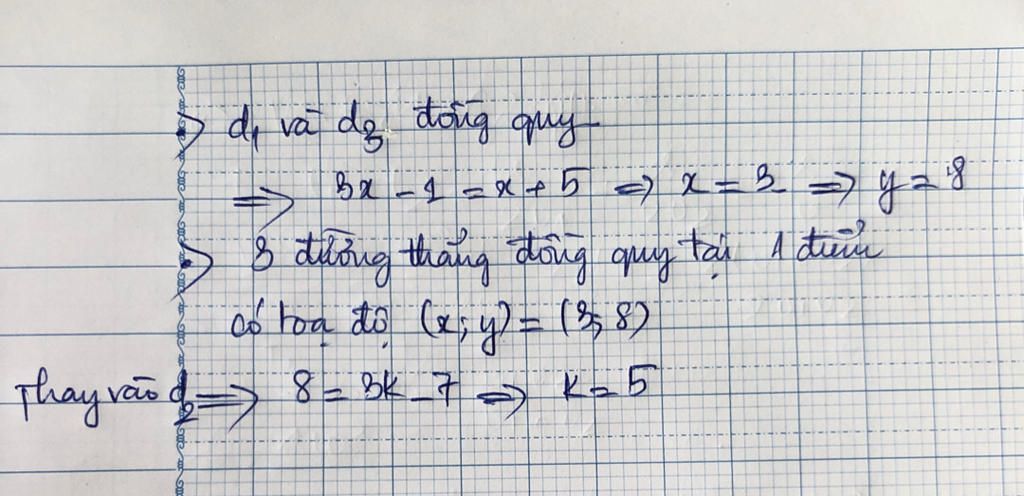 => d₁ và d₃ đồng quy
=> 3x - 1 = x + 5 => x = 3 => y = 8
=> 3 đường thẳng đồng quy tại 1 điểm
có toạ độ (x; y) = (3; 8)
Thay vào d₂ => 8 = 3k - 7 => k = 5